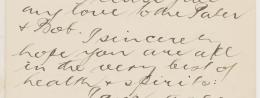 my love to the Pater
& Bob. I sincerely
hope you are all
in the very best of
health & spirits: